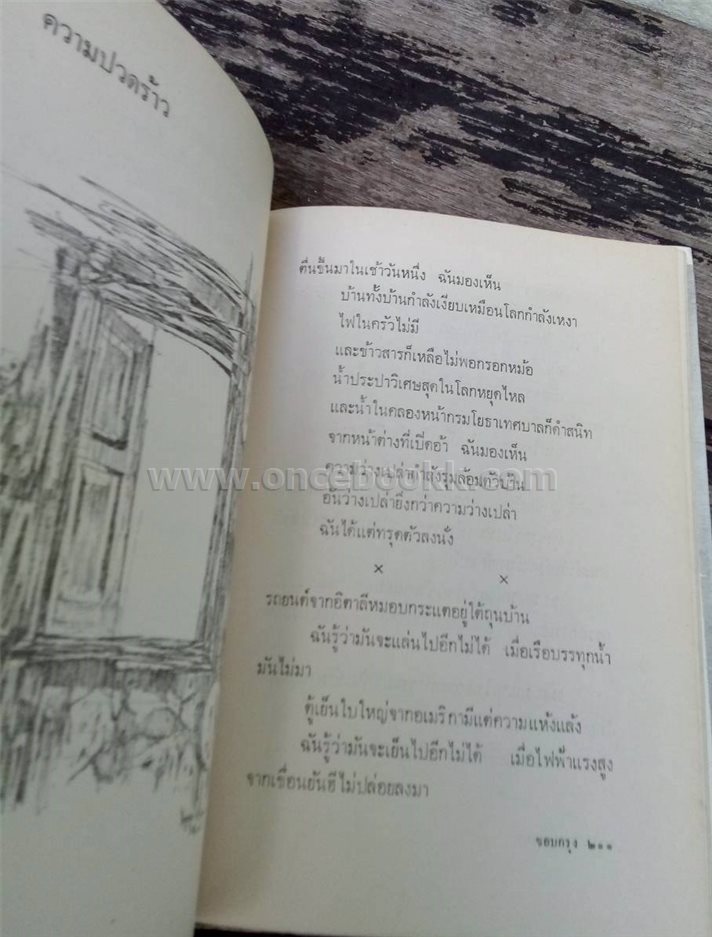 ความปวดร้าว
ตื่นขึ้นมาในเช้าวันหนึ่ง ฉันมองเห็น
บ้านทั้งบ้านกำลังเงียบเหมือนโลกกำลังเหงา
ไฟในครัวไม่มี
และข้าวสารก็เหลือไม่พอกรอกหม้อ
น้ำประปาวิเศษสุดในโลกหยุดไหล
และน้ำในคลองหน้ากรมโยธาเทศบาลก็ดำสนิท
จากหน้าต่างที่เปิดอ้า ฉันมองเห็น
ความว่างเปล่ากำลังรุมล้อมตัวบ้าน
www.oncebookk.com
อันว่างเปล่ายิ่งกว่าความว่างเปล่า
ฉันได้แต่ทรุดตัวลงนั่ง
× ×
รถยนต์จากอิตาลีหมอบกระแตอยู่ใต้ถุนบ้าน
ฉันรู้ว่ามันจะแล่นไปอีกไม่ได้ เมื่อเรือบรรทุกน้ำ
มันไม่มา
ตู้เย็นใบใหญ่จากอเมริกามีแต่ความแห้งแล้ง
ฉันรู้ว่ามันจะเย็นไปอีกไม่ได้ เมื่อไฟฟ้าแรงสูง
จากเขื่อนยันฮีไม่ปล่อยลงมา
ขอบกรุง ๒๐๑